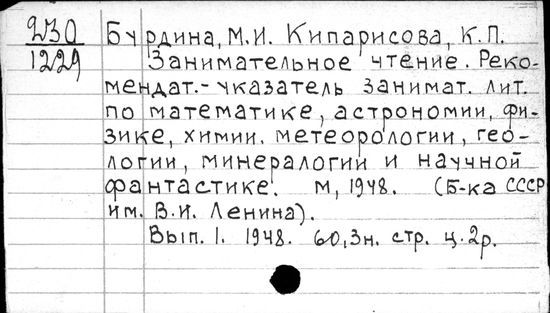 230 Бурдина, М.И. Кипарисова, К.П.
1229 Занимательное чтение. Реко-
мендат.-указатель занимат. лит.
по математике, астрономии, фи-
зике, химии. метеорологии, гео-
логии, минералогии и научной
фантастике. М, 1948. (Б-ка СССР
им. В.И. Ленина).
Вып. 1. 1948. 60,3н. стр. ц. 2р.